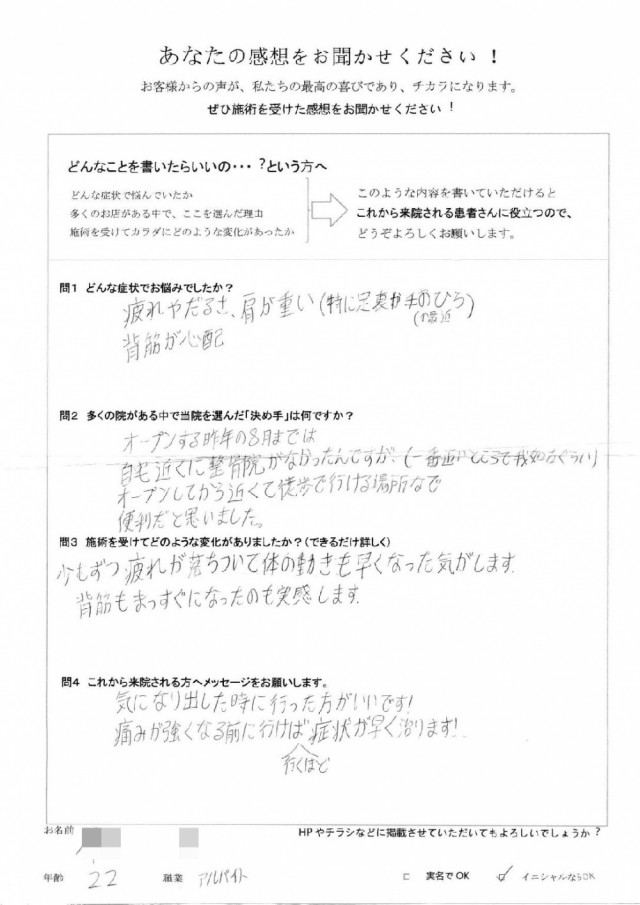 あなたの感想をお聞かせください！
お客様からの声が、私たちの最高の喜びであり、チカラになります。
ぜひ施術を受けた感想をお聞かせください！
どんなことを書いたらいいの・・・?という方へ
どんな症状で悩んでいたか
多くのお店がある中で、ここを選んだ理由
施術を受けてカラダにどのような変化があったか
このような内容を書いていただけると
これから来院される患者さんに役立つので、
どうぞよろしくお願いします。
問1 どんな症状でお悩みでしたか？
疲れやだるさ、肩が重い(特に足裏か手のひら)
(最近
背筋が心配
問2 多くの院がある中で当院を選んだ「決め手」は何ですか？
オープンする昨年の8月までは
自宅近くに整骨院がなかったんですが、(一番近いところで我如古ぐらい)
オープンしてから近くて徒歩で行ける場所なで
便利だと思いました。
問3 施術を受けてどのような変化がありましたか？(できるだけ詳しく)
少しずつ疲れが落ちついて体の動きも早くなった気がします.
背筋もまっすぐになったのも実感します.
問4 これから来院される方へメッセージをお願いします。
気になり出した時に行った方がいいです!
痛みが強くなる前に行けば症状が早く治ります!
行くほど
お名前
HPやチラシなどに掲載させていただいてもよろしいでしょうか？
年齢 22 職業 アルバイト □ 実名でOK ☑ イニシャルならOK